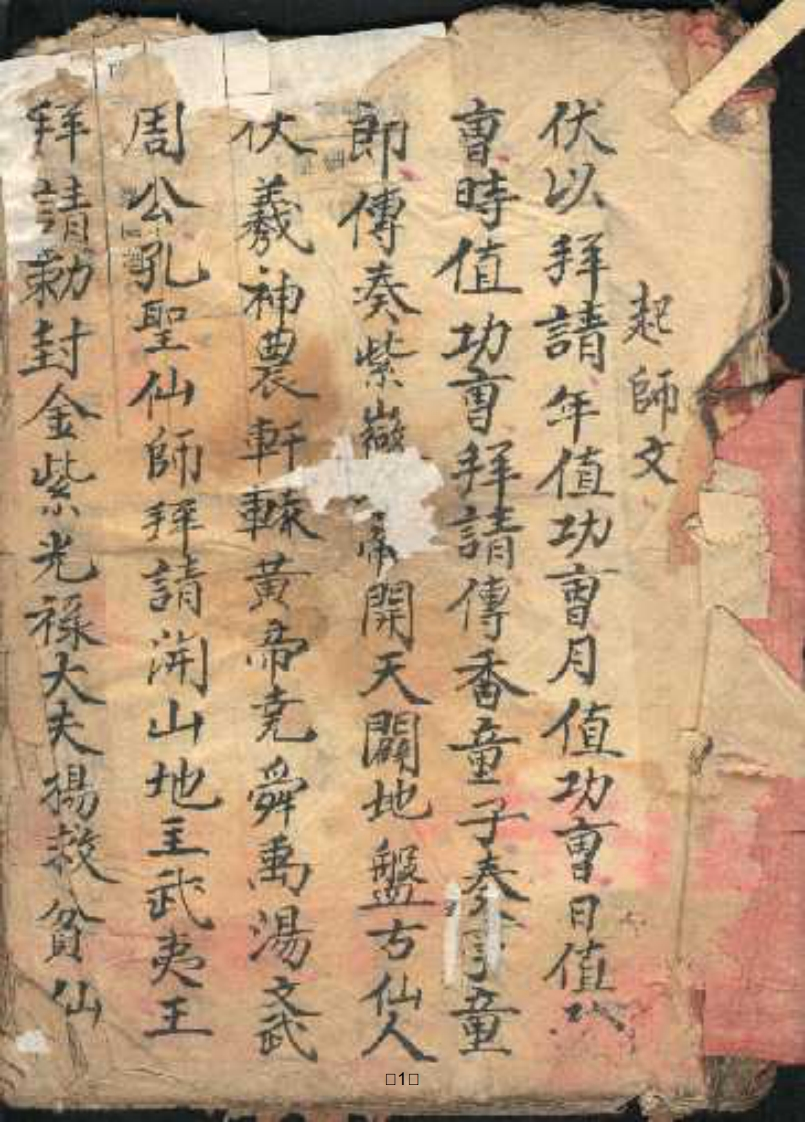 起師文
伏以拜請年值功曹月值功曹日值功
曹時值功曹拜請傳香童子奏童
即傳奏紫嶽帝開天闢地盤古仙人
伏羲神農軒轅黃帝堯舜禹湯文武
周公孔聖仙師拜請開山地主武夷王
拜請勅封金紫光祿大夫楊救貧仙
1